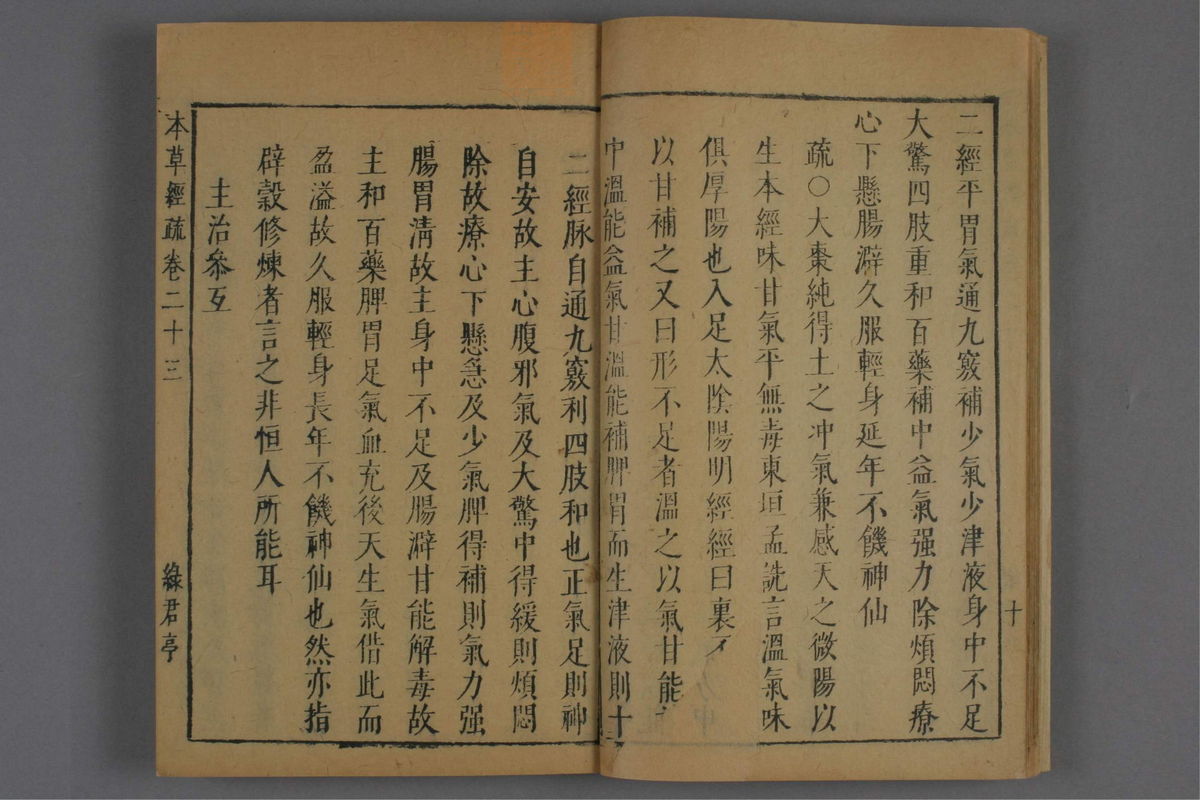 十
二經平胃氣通九竅補少氣少津液身中不足
大驚四肢重和百藥補中益氣强力除煩悶療
心下懸腸澼久服輕身延年不饑神仙
疏〇大棗純得土之冲氣兼感天之微陽以
生本經味甘氣平無毒東垣孟詵言溫氣味
俱厚陽也入足太陰陽明經經曰裏
以甘補之又曰形不足者溫之以氣甘能
中溫能益氣甘溫能補脾胃而生津液則十
二經脉自通九竅利四肢和也正氣足則神
自安故主心腹邪氣及大驚中得緩則煩悶
除故療心下懸急及少氣脾得補則氣力强
腸胃淸故主身中不足及腸澼甘能解毒故
主和百藥脾胃足氣血充後天生氣借此而
盈溢故久服輕身長年不饑神仙也然亦指
辟穀修煉者言之非恒人所能耳
主治叅互
本草經疏卷二十三
綠君亭